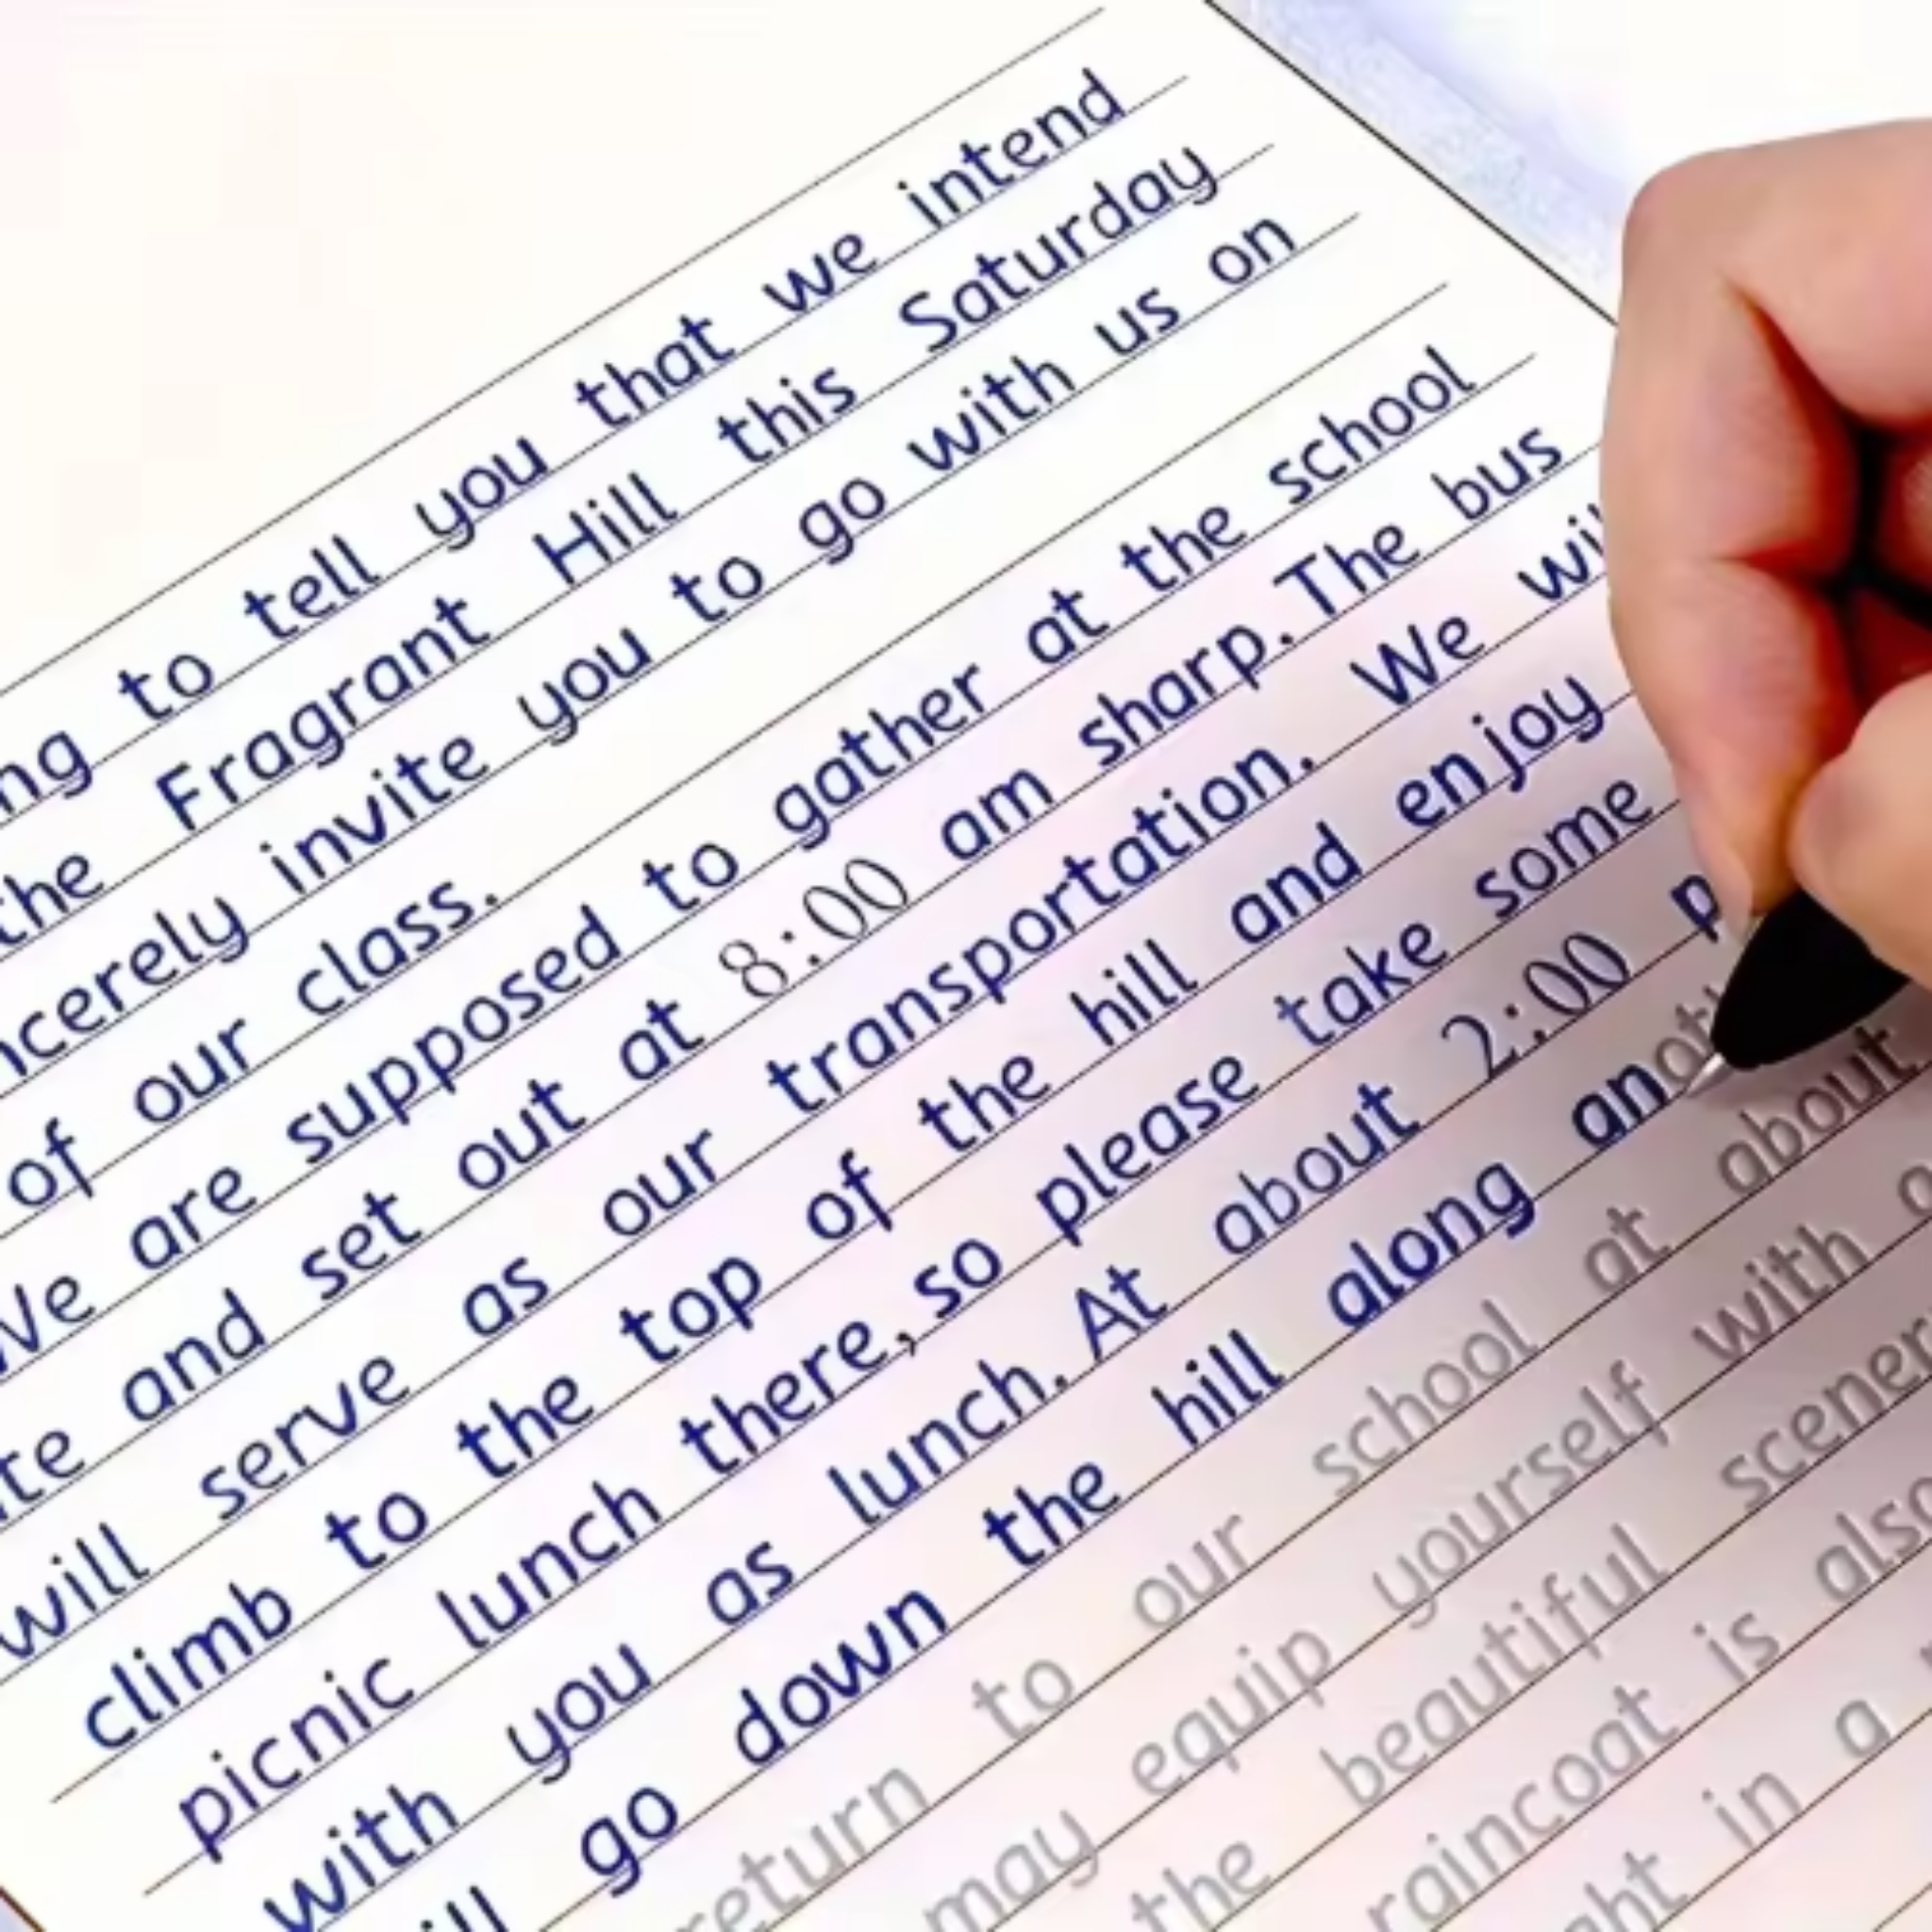 to tell you that we intend
the Fragrant Hill this Saturday
invite you to go with us on
of our class.
We are supposed to gather at the school
and set out at 8:00 am sharp. The bus
will serve as our transportation. We
climb to the top of the hill and enjoy
picnic lunch there, so please take some
with you as lunch. At about 2:00 p
go down the hill along an
return to our school at about
may equip yourself with
the beautiful
raincoat is also
in a